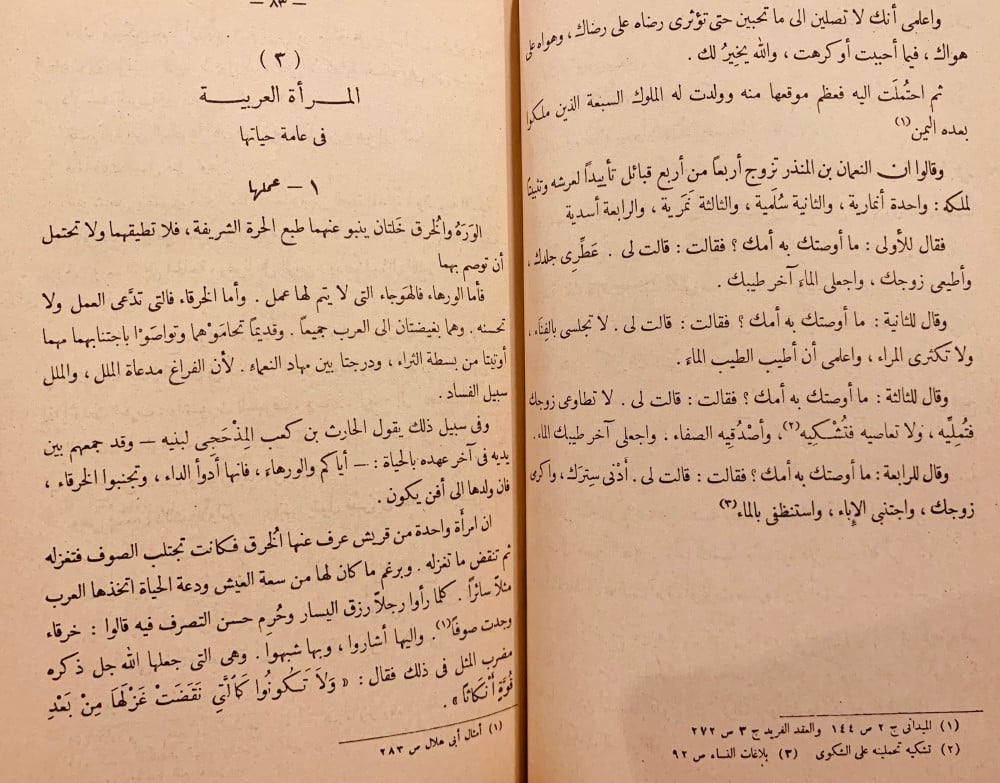 واعلمى أنك لا تصلين الى ما تحبين حتى تؤثرى رضاه على رضاك، وهواه على
هواك، فيما أحببت أو كرهت، والله يخيرُ لك.
ثم احتُملَت اليه فعظم موقعها منه وولدت له الملوك السبعة الذين ملكوا
بعده اليمن (١)
وقالوا ان النعمان بن المنذر تزوج أربعاً من أربع قبائل تأييداً لعرشه وتثبيتاً
لملكه: واحدة أنمارية، والثانية سُلَمية، والثالثة نَمَرية، والرابعة أسدية
فقال للأولى: ما أوصتك به أمك؟ فقالت: قالت لى. عَطِّرِى جلدك،
وأطيعى زوجك، واجعلى الماءَ آخر طيبك.
وقال للثانية: ما أوصتك به أمك؟ فقالت: قالت لى. لا تجلسى بالفِنَاء،
ولا تكثرى المراء، واعلمى أن أطيب الطيب الماءَ.
وقال للثالثة: ما أوصتك به أمك؟ فقالت: قالت لى. لا تطاوعى زوجك
فتُمِلِّيه، ولا تعاصيه فتُشْكِيه (٢)، وأصْدُقِيه الصفاء. واجعلى آخر طيبك الماء.
وقال للرابعة: ما أوصتك به أمك؟ فقالت: قالت لى. أدْنى سِترَك، واكرمى
زوجك، واجتنبى الإِباء، واستنظفى بالماء (٣)
(١) الميدانى ج ٢ ص ١٤٤ والعقد الفريد ج ٣ ص ٢٧٢
(٢) تشكيه تحملينه على الشكوى (٣) بلاغات النساء ص ٩٢
— ٨٣ —
(٣)
المــرأة العربيــــة
فى عامة حياتها
١ — عملها
الوَرَهُ والخُرق خَلتان ينبو عنهما طبع الحرة الشريفة، فلا تطيقهما ولا تحتمل
أن توصم بهما
فأما الورهاء فالهَوجاء التى لا يتم لها عمل. وأما الخرقاء فالتى تدَّعى العمل ولا
تحسنه. وهما بغيضتان الى العرب جميعاً. وقديماً تحامَوْهما وتواصَوْا باجتنابهما مهما
أوتيتا من بسطة الثراء، ودرجتا بين مهاد النعماء. لأن الفراغ مدعاة الملل، والملل
سبيل الفساد.
وفى سبيل ذلك يقول الحارث بن كعب المِذْحَجى لبنيه — وقد جمعهم بين
يديه فى آخر عهده بالحياة: — أياكم والورهاءِ، فانها أدوأ الداء، وتجنبوا الخرقاء،
فان ولدها الى أفن يكون.
ان امرأة واحدة من قريش عرف عنها الخُرق فكانت تجتلب الصوف فتغزله
ثم تنقض ما تغزله. وبرغم ما كان لها من سعة العيش ودعة الحياة اتخذها العرب
مثلاً سائراً. كلما رأوا رجلاً رزق اليسار وحُرِم حسن التصرف فيه قالوا: خرقاء
وجدت صوفاً (١). واليها أشاروا، وبها شبهوا. وهى التى جعلها الله جل ذكره
مضرب المثل فى ذلك فقال: « وَلاَ تَكونُوا كَالَّتِي نَقَضَتْ غَزْلَهَا مِنْ بَعْدِ
قُوَّةٍ أَنْكَاثًا ».
(١) أمثال أبى هلال ص ٢٨٣